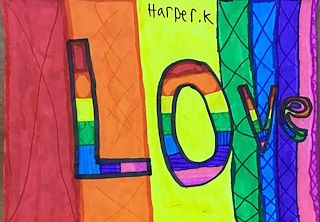 Harper.K
LOVe